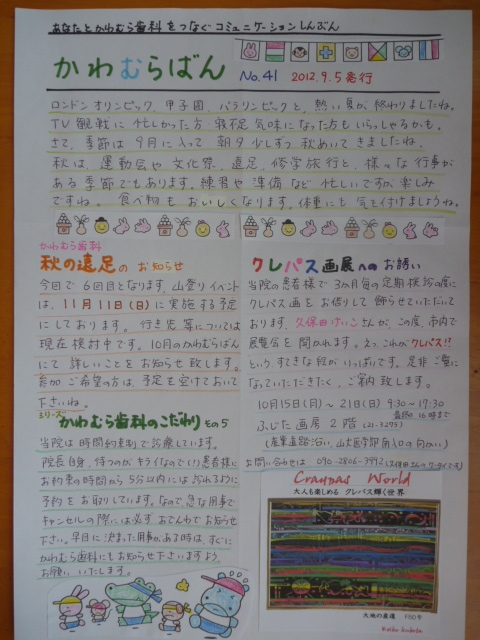 あなたとかわむら歯科をつなぐコミュニケーションしんぶん
かわむらばん
No.41 2012.9.5発行
ロンドンオリンピック、甲子園、パラリンピックと、熱い夏が終わりましたね。
TV観戦に忙しかった方・寝不足気味になった方もいらっしゃるかも。
さて、季節は9月に入って朝夕少しずつ秋めいてきましたね。
秋は、運動会や文化祭、遠足、修学旅行と、様々な行事が
ある季節でもあります。練習や準備など忙しいですが楽しみ
ですね。食べ物もおいしくなります。体重にも気を付けましょうね。
かわむら歯科
秋の遠足のお知らせ
今回で6回目となります、山登りイベント
は、11月11日(日)に実施する予定
にしております。行き先等については
現在検討中です。10月のかわむらばん
にて詳しいことをお知らせ致します。
参加ご希望の方は、予定を空けておいて
下さいね。
シリーズ
かわむら歯科のこだわり その5
当院は時間約束制で診療しています。
院長自身、待つのがキライなので(!)患者様に
お約束の時間から5分以内には座られるように
予約をお取りしています。なので、急な用事で
キャンセルの際には必ずおでんわでお知らせ
下さい。早目に決まった用事がある時は、すぐに
かわむら歯科にもお知らせ下さいますよう、
お願いいたします。
クレパス画展へのお誘い
当院の患者様で3か月毎の定期検診の度に
クレパス画をお借りして飾らせていただいて
おります、久保田けいこさんが、この度、市内で
展覧会を開かれます。えっ、これがクレパス!!
というすてきな絵がいっぱいです。是非ご覧に
なっていただきたく、ご案内致します。
10月15日(月)～21日(日) 9:30～17:30
最終日16時まで
ふじた画房2階 (21-5255)
(産業道路沿い、山大医学部南入口の向かい)
お問い合わせは 090-2806-3992
Craypas World
大人も楽しめる クレパス輝く世界
大地の鼓動 F50号
Keiko Kubota